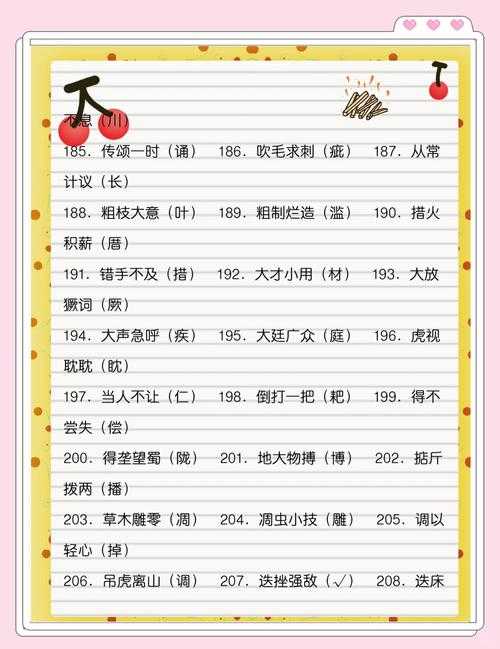 不息（川）
185．传颂一时（诵） 186．吹毛求刺（疵） 187．从常
计议（长）
188．粗枝大意（叶） 189．粗制烂造（滥） 190．措火
积薪（厝）
191．错手不及（措） 192．大才小用（材） 193．大放
獗词（厥）
194．大声急呼（疾） 195．大廷广众（庭） 196．虎视
耽耽（眈）
197．当人不让（仁） 198．倒打一把（耙） 199．得不
尝失（偿）
200．得垄望蜀（陇） 201．地大物搏（博） 202．掂斤
拨两（播）
203．草木雕零（凋） 204．凋虫小技（雕） 205．调以
轻心（掉）
206．吊虎离山（调） 207．迭挫强敌（√） 208．迭床